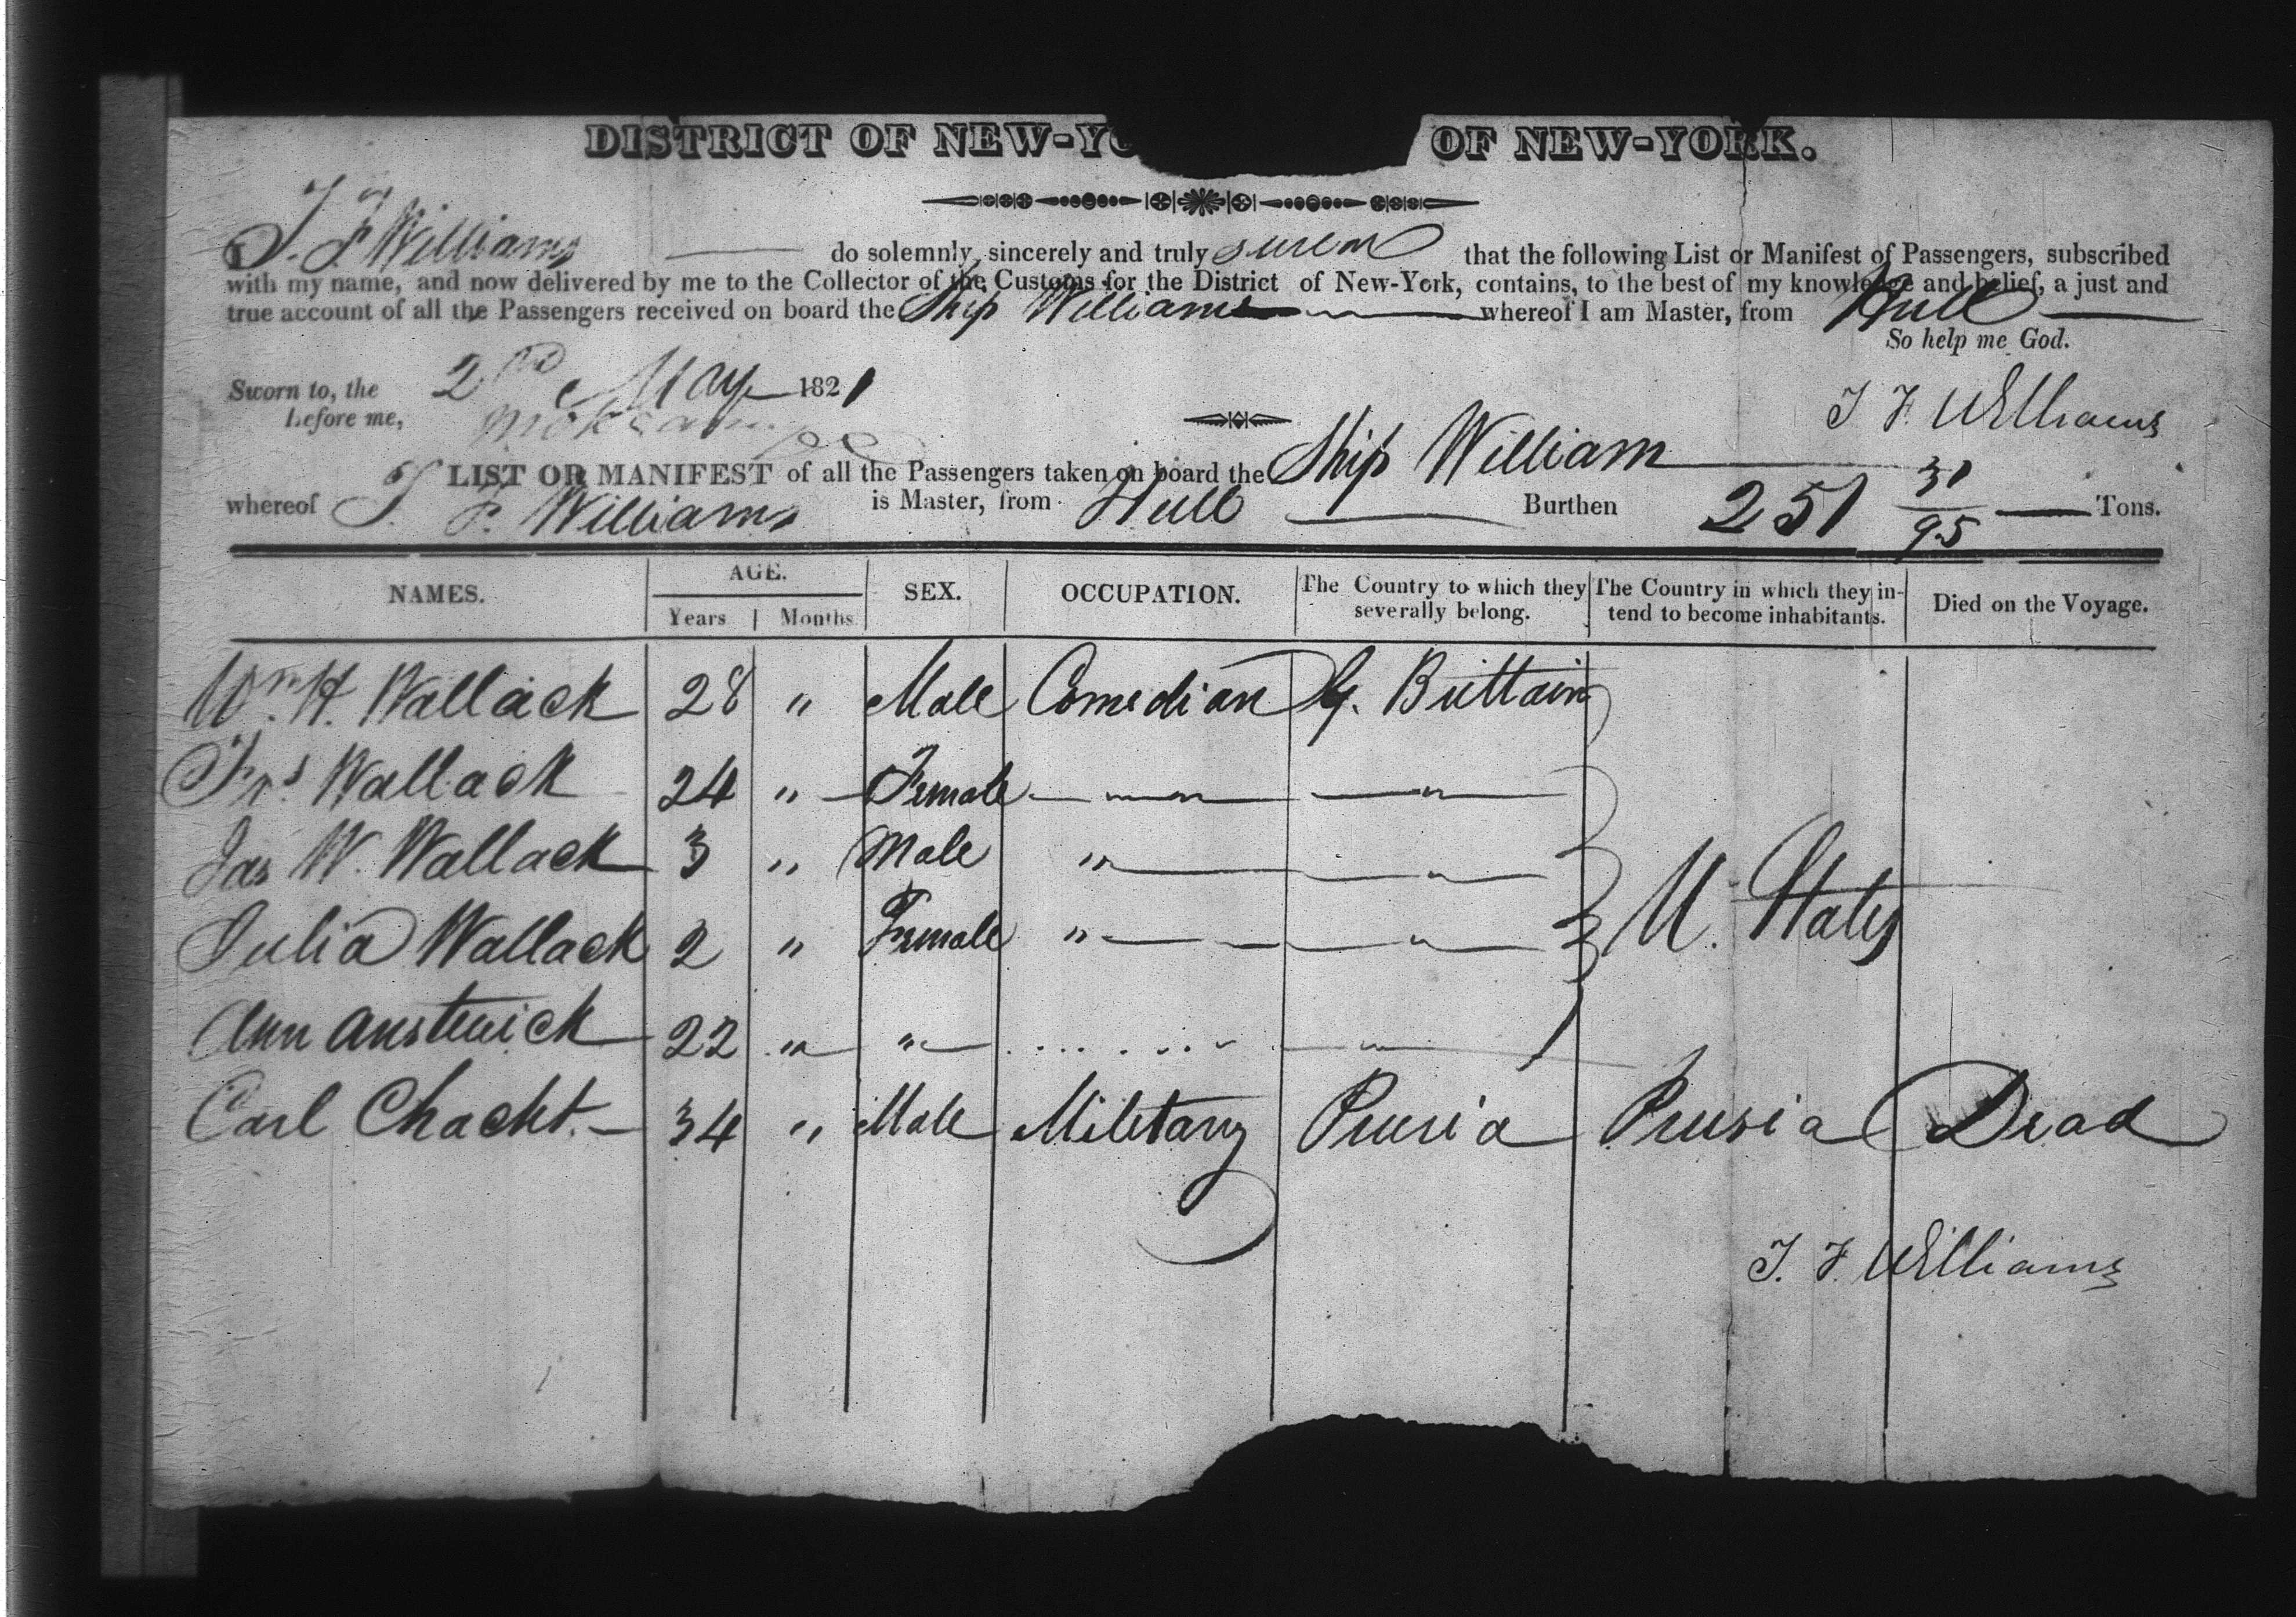 DISTRICT OF NEW-YO OF NEW-YORK.
I T. F. Williams do solemnly, sincerely and truly swear that the following List or Manifest of Passengers, subscribed
with my name, and now delivered by me to the Collector of the Customs for the District of New-York, contains, to the best of my knowledge and belief, a just and
true account of all the Passengers received on board the Ship Williams whereof I am Master, from Hull
So help me God.
Sworn to, the 2nd May 1821
before me,
T F Williams
LIST OR MANIFEST of all the Passengers taken on board the Ship William
whereof T. F. Williams is Master, from Hull Burthen 251 31/95 Tons.
NAMES. AGE. Years Months SEX. OCCUPATION. The Country to which they severally belong. The Country in which they intend to become inhabitants. Died on the Voyage.
Wm. H. Wallack 28 " Male Comedian G. Brittain
Frs Wallack 24 " Female " "
Jas W. Wallack 3 " Male " "
Julia Wallack 2 " Female " " U. States
Ann Austwick 22 " " "
Carl Chacht. 34 " Male Military Prusia Prusia Dead
T. F. Williams